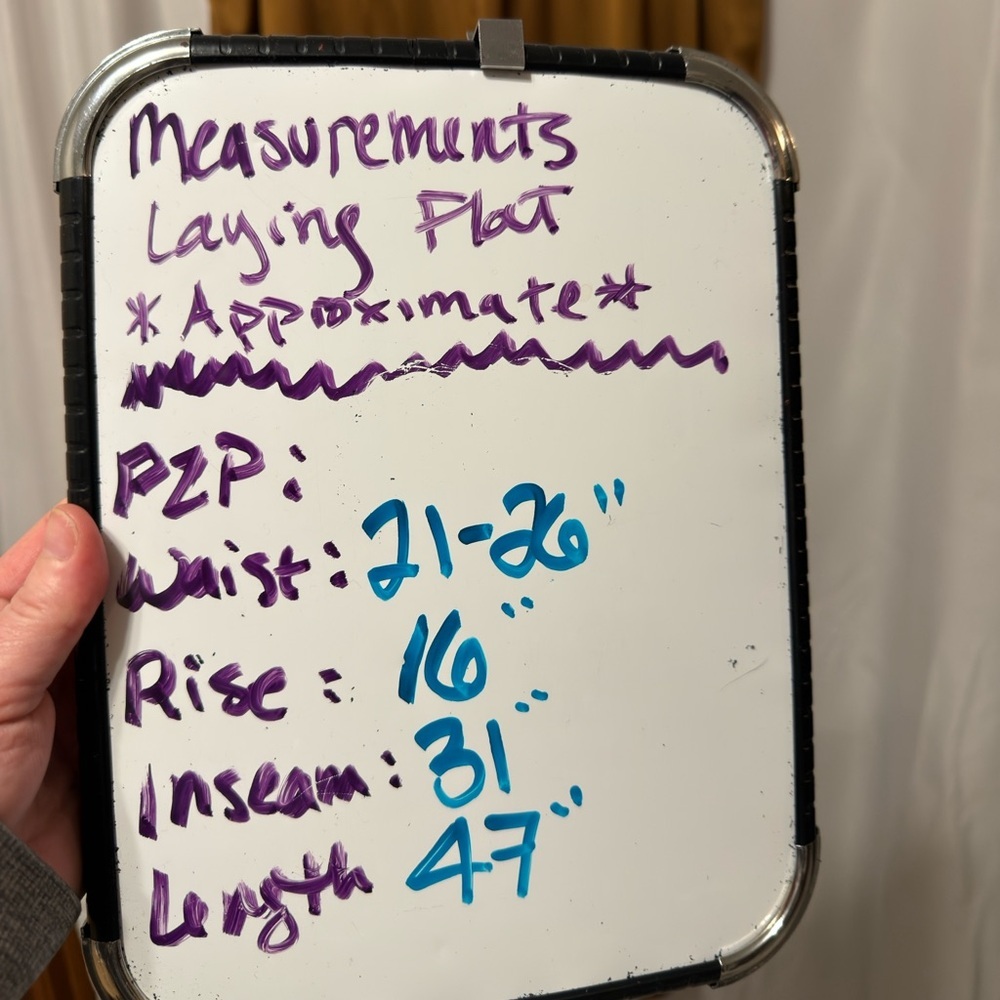 Measurements
Laying Flat
*Approximate*
PZP:
Waist: 21-26"
Rise: 16"
Inseam: 31"
Length 47"